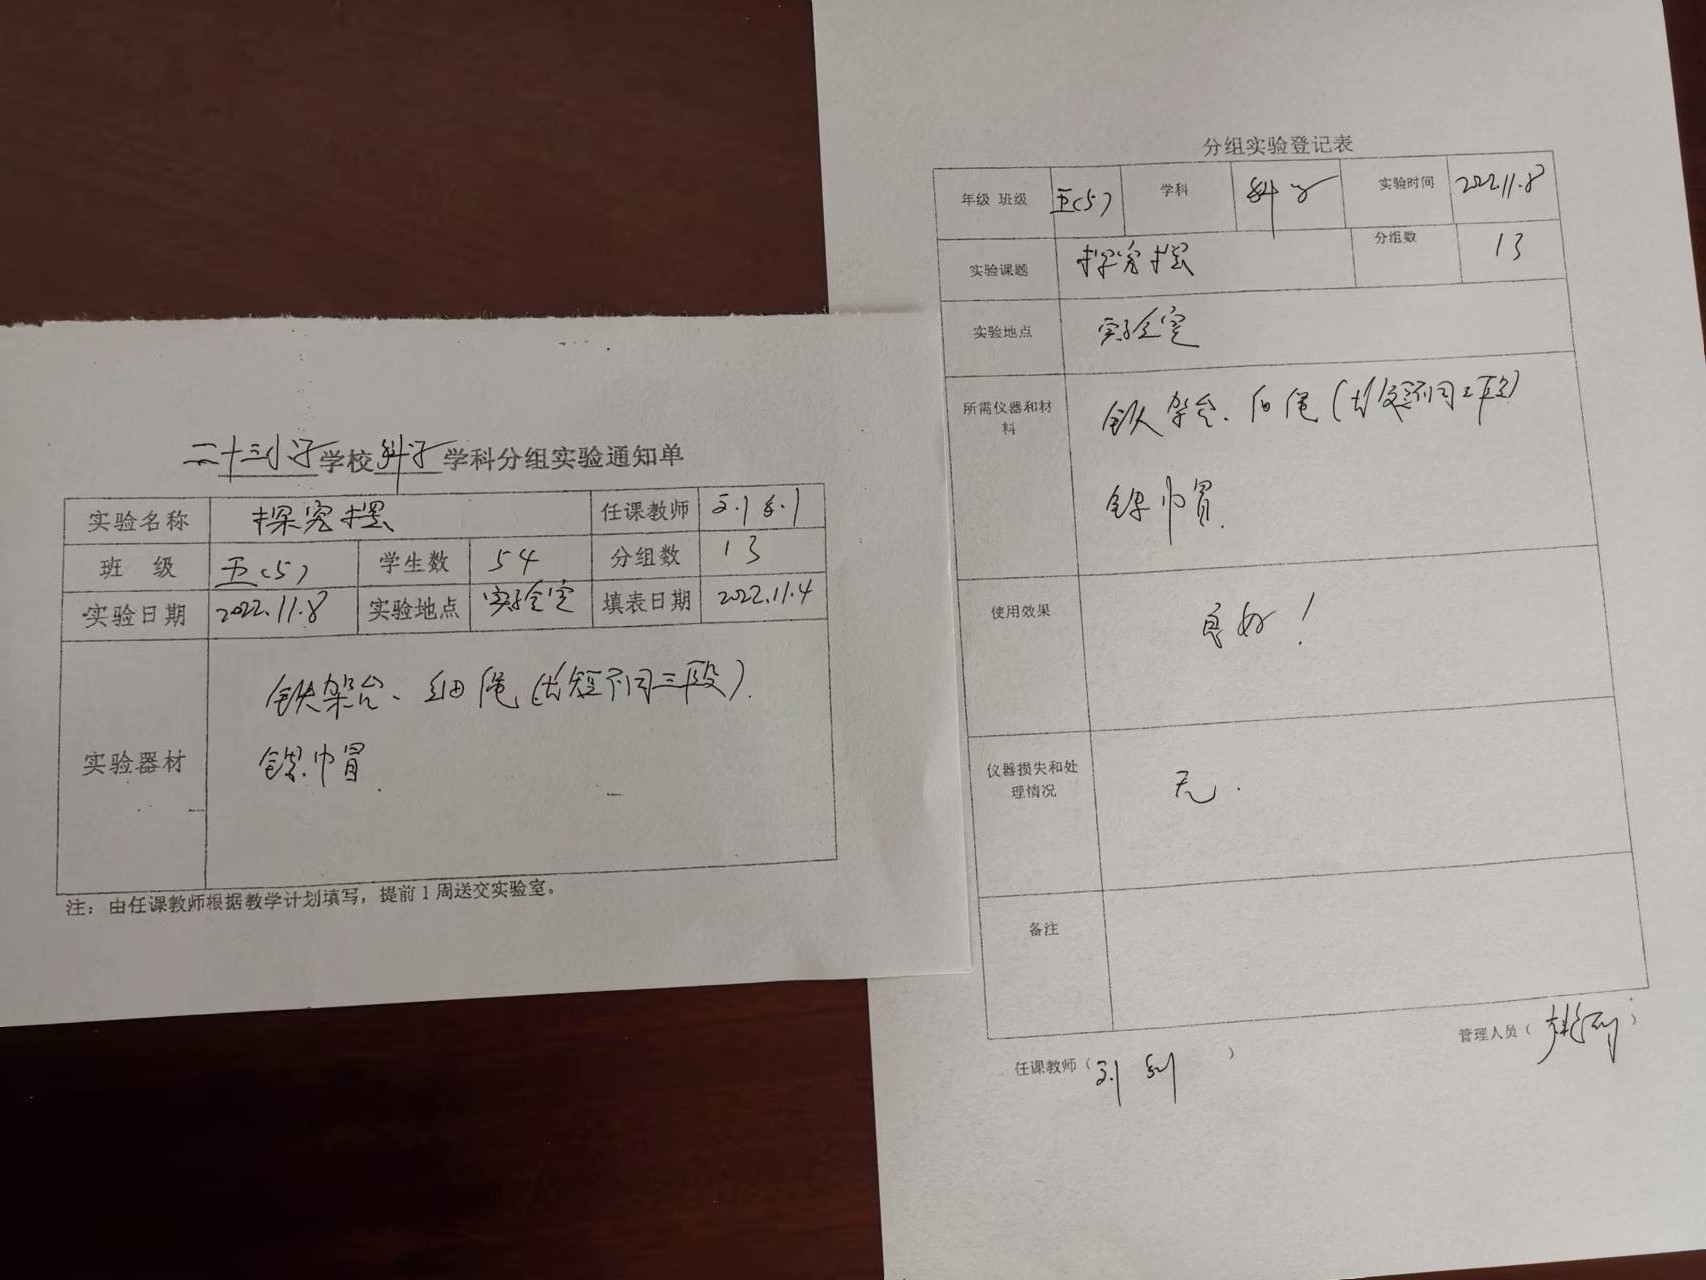 二十三小学学校科学学科分组实验通知单
实验名称 探究摆 任课教师 刘
班 级 五(5) 学生数 54 分组数 13
实验日期 2022.11.8 实验地点 实验室 填表日期 2022.11.4
实验器材 铁架台、细绳(长短不同三段).
帽.
注：由任课教师根据教学计划填写，提前1周送交实验室。
分组实验登记表
年级 班级 五(5) 学科 科学 实验时间 2022.11.8
实验课题 探究摆 分组数 13
实验地点 实验室
所需仪器和材料 铁架台、细绳(长短不同三段)
帽.
使用效果 良好！
仪器损失和处理情况 无.
备注
任课教师（刘 ） 管理人员（ ）